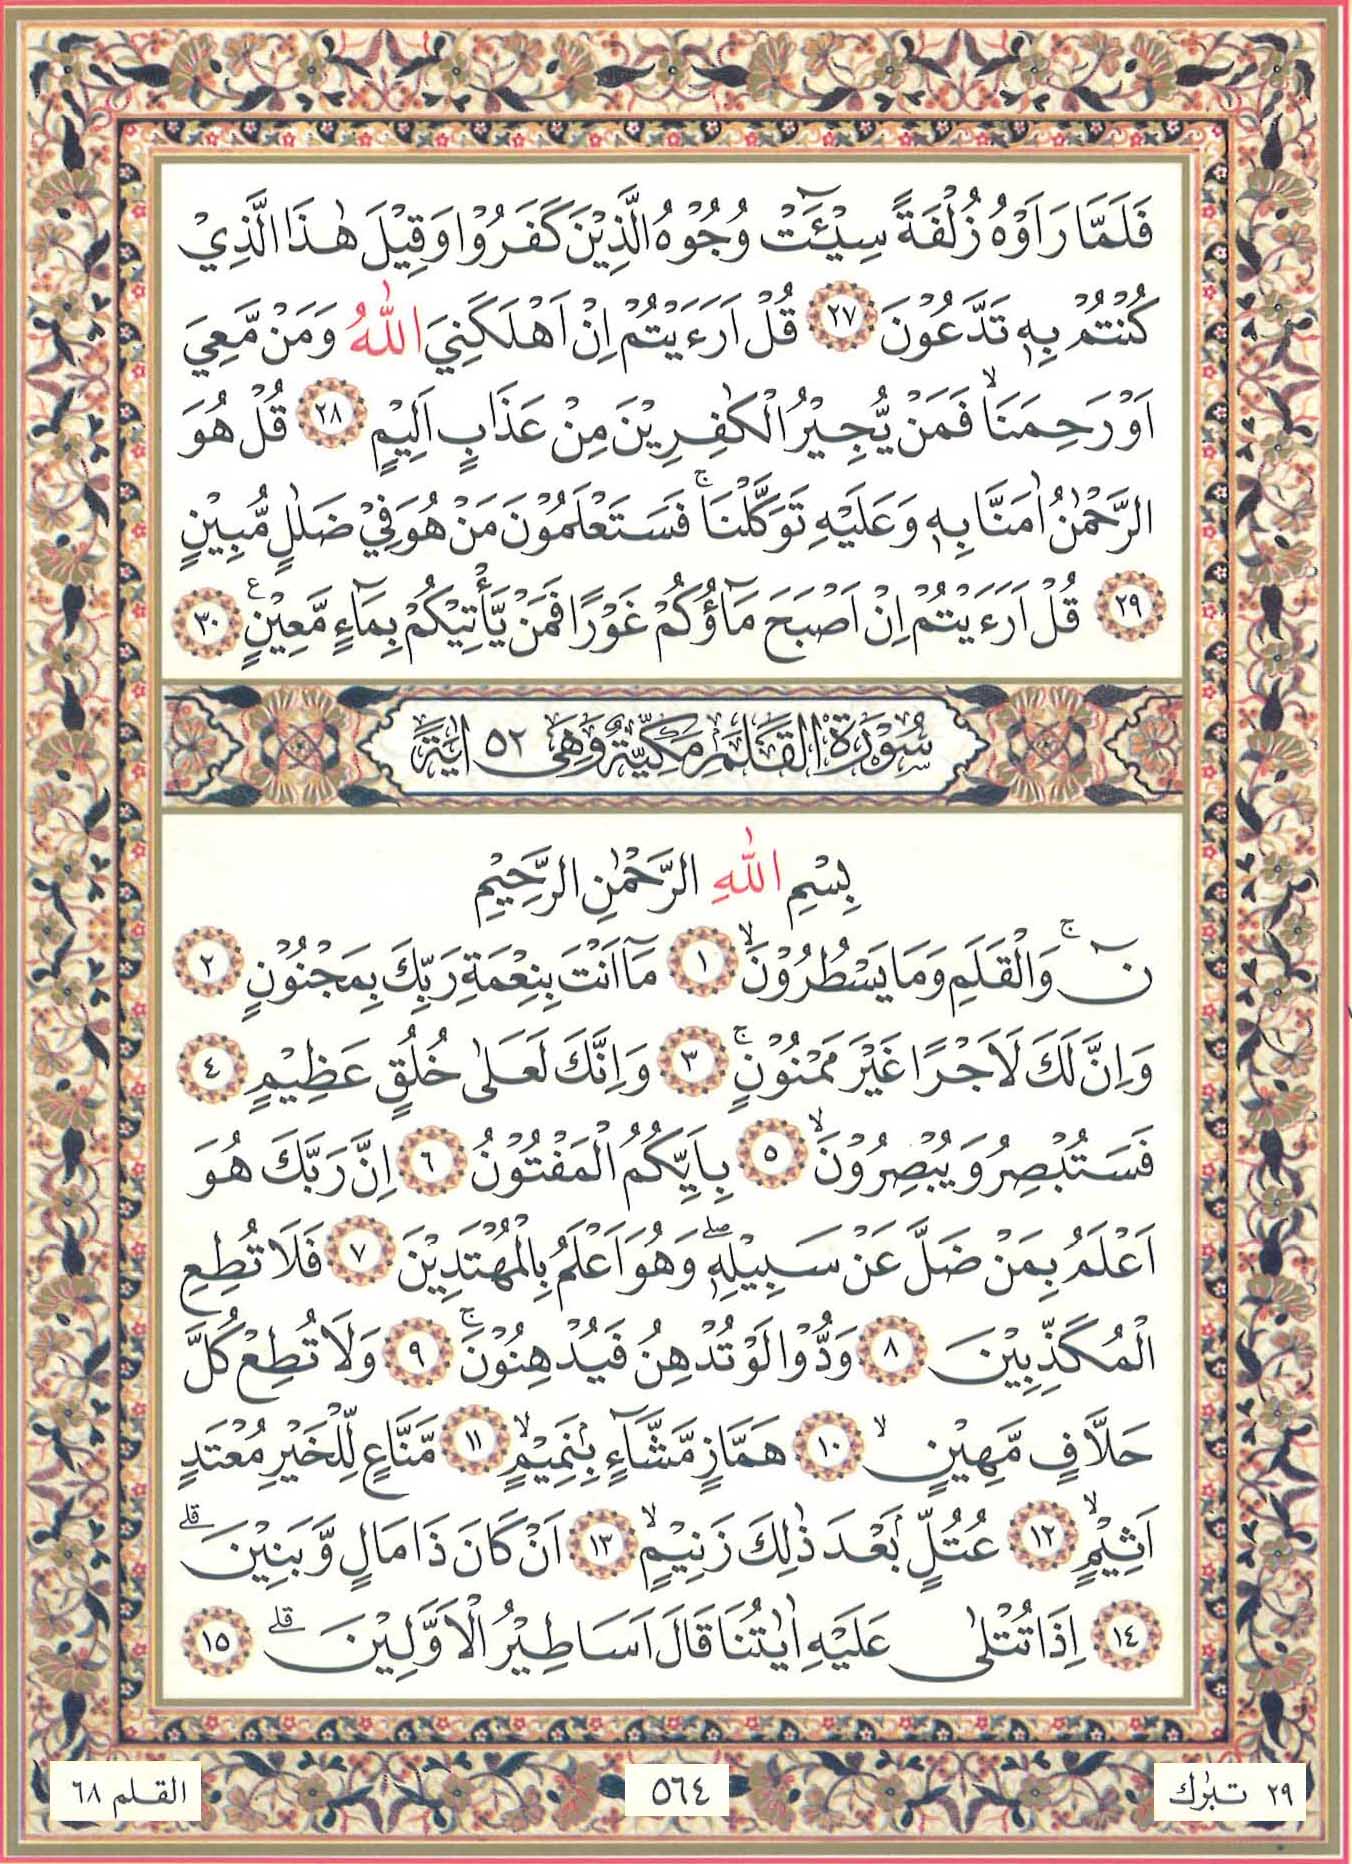 فَلَمَّا رَاَوْهُ زُلْفَةً سِيْٓـَٔتْ وُجُوْهُ الَّذِيْنَ كَفَرُوْا وَقِيْلَ هٰذَا الَّذِيْ
كُنْتُمْ بِهٖ تَدَّعُوْنَ ٢٧ قُلْ اَرَءَيْتُمْ اِنْ اَهْلَكَنِيَ اللّٰهُ وَمَنْ مَّعِيَ
اَوْ رَحِمَنَاۙ فَمَنْ يُّجِيْرُ الْكٰفِرِيْنَ مِنْ عَذَابٍ اَلِيْمٍ ٢٨ قُلْ هُوَ
الرَّحْمٰنُ اٰمَنَّا بِهٖ وَعَلَيْهِ تَوَكَّلْنَاۚ فَسَتَعْلَمُوْنَ مَنْ هُوَ فِيْ ضَلٰلٍ مُّبِيْنٍ
٢٩ قُلْ اَرَءَيْتُمْ اِنْ اَصْبَحَ مَآؤُكُمْ غَوْرًا فَمَنْ يَّأْتِيْكُمْ بِمَآءٍ مَّعِيْنٍ ع ٣٠
سُوْرَةُ الْقَلَمِ مَكِّيَّةٌ وَهِيَ ٥٢ اٰيَةً
بِسْمِ اللّٰهِ الرَّحْمٰنِ الرَّحِيْمِ
نۤۚ وَالْقَلَمِ وَمَا يَسْطُرُوْنَۙ ١ مَآ اَنْتَ بِنِعْمَةِ رَبِّكَ بِمَجْنُوْنٍ ٢
وَاِنَّ لَكَ لَاَجْرًا غَيْرَ مَمْنُوْنٍۚ ٣ وَاِنَّكَ لَعَلٰى خُلُقٍ عَظِيْمٍ ٤
فَسَتُبْصِرُ وَيُبْصِرُوْنَۙ ٥ بِاَيِّكُمُ الْمَفْتُوْنُ ٦ اِنَّ رَبَّكَ هُوَ
اَعْلَمُ بِمَنْ ضَلَّ عَنْ سَبِيْلِهٖۖ وَهُوَ اَعْلَمُ بِالْمُهْتَدِيْنَ ٧ فَلَا تُطِعِ
الْمُكَذِّبِيْنَ ٨ وَدُّوْا لَوْ تُدْهِنُ فَيُدْهِنُوْنَۚ ٩ وَلَا تُطِعْ كُلَّ
حَلَّافٍ مَّهِيْنٍۙ ١٠ هَمَّازٍ مَّشَّآءٍۢ بِنَمِيْمٍۙ ١١ مَّنَّاعٍ لِّلْخَيْرِ مُعْتَدٍ
اَثِيْمٍۙ ١٢ عُتُلٍّۢ بَعْدَ ذٰلِكَ زَنِيْمٍۙ ١٣ اَنْ كَانَ ذَا مَالٍ وَّبَنِيْنَۗ
١٤ اِذَا تُتْلٰى عَلَيْهِ اٰيٰتُنَا قَالَ اَسَاطِيْرُ الْاَوَّلِيْنَۗ ١٥
٢٩ تبٰرك
٥٦٤
القلم ٦٨